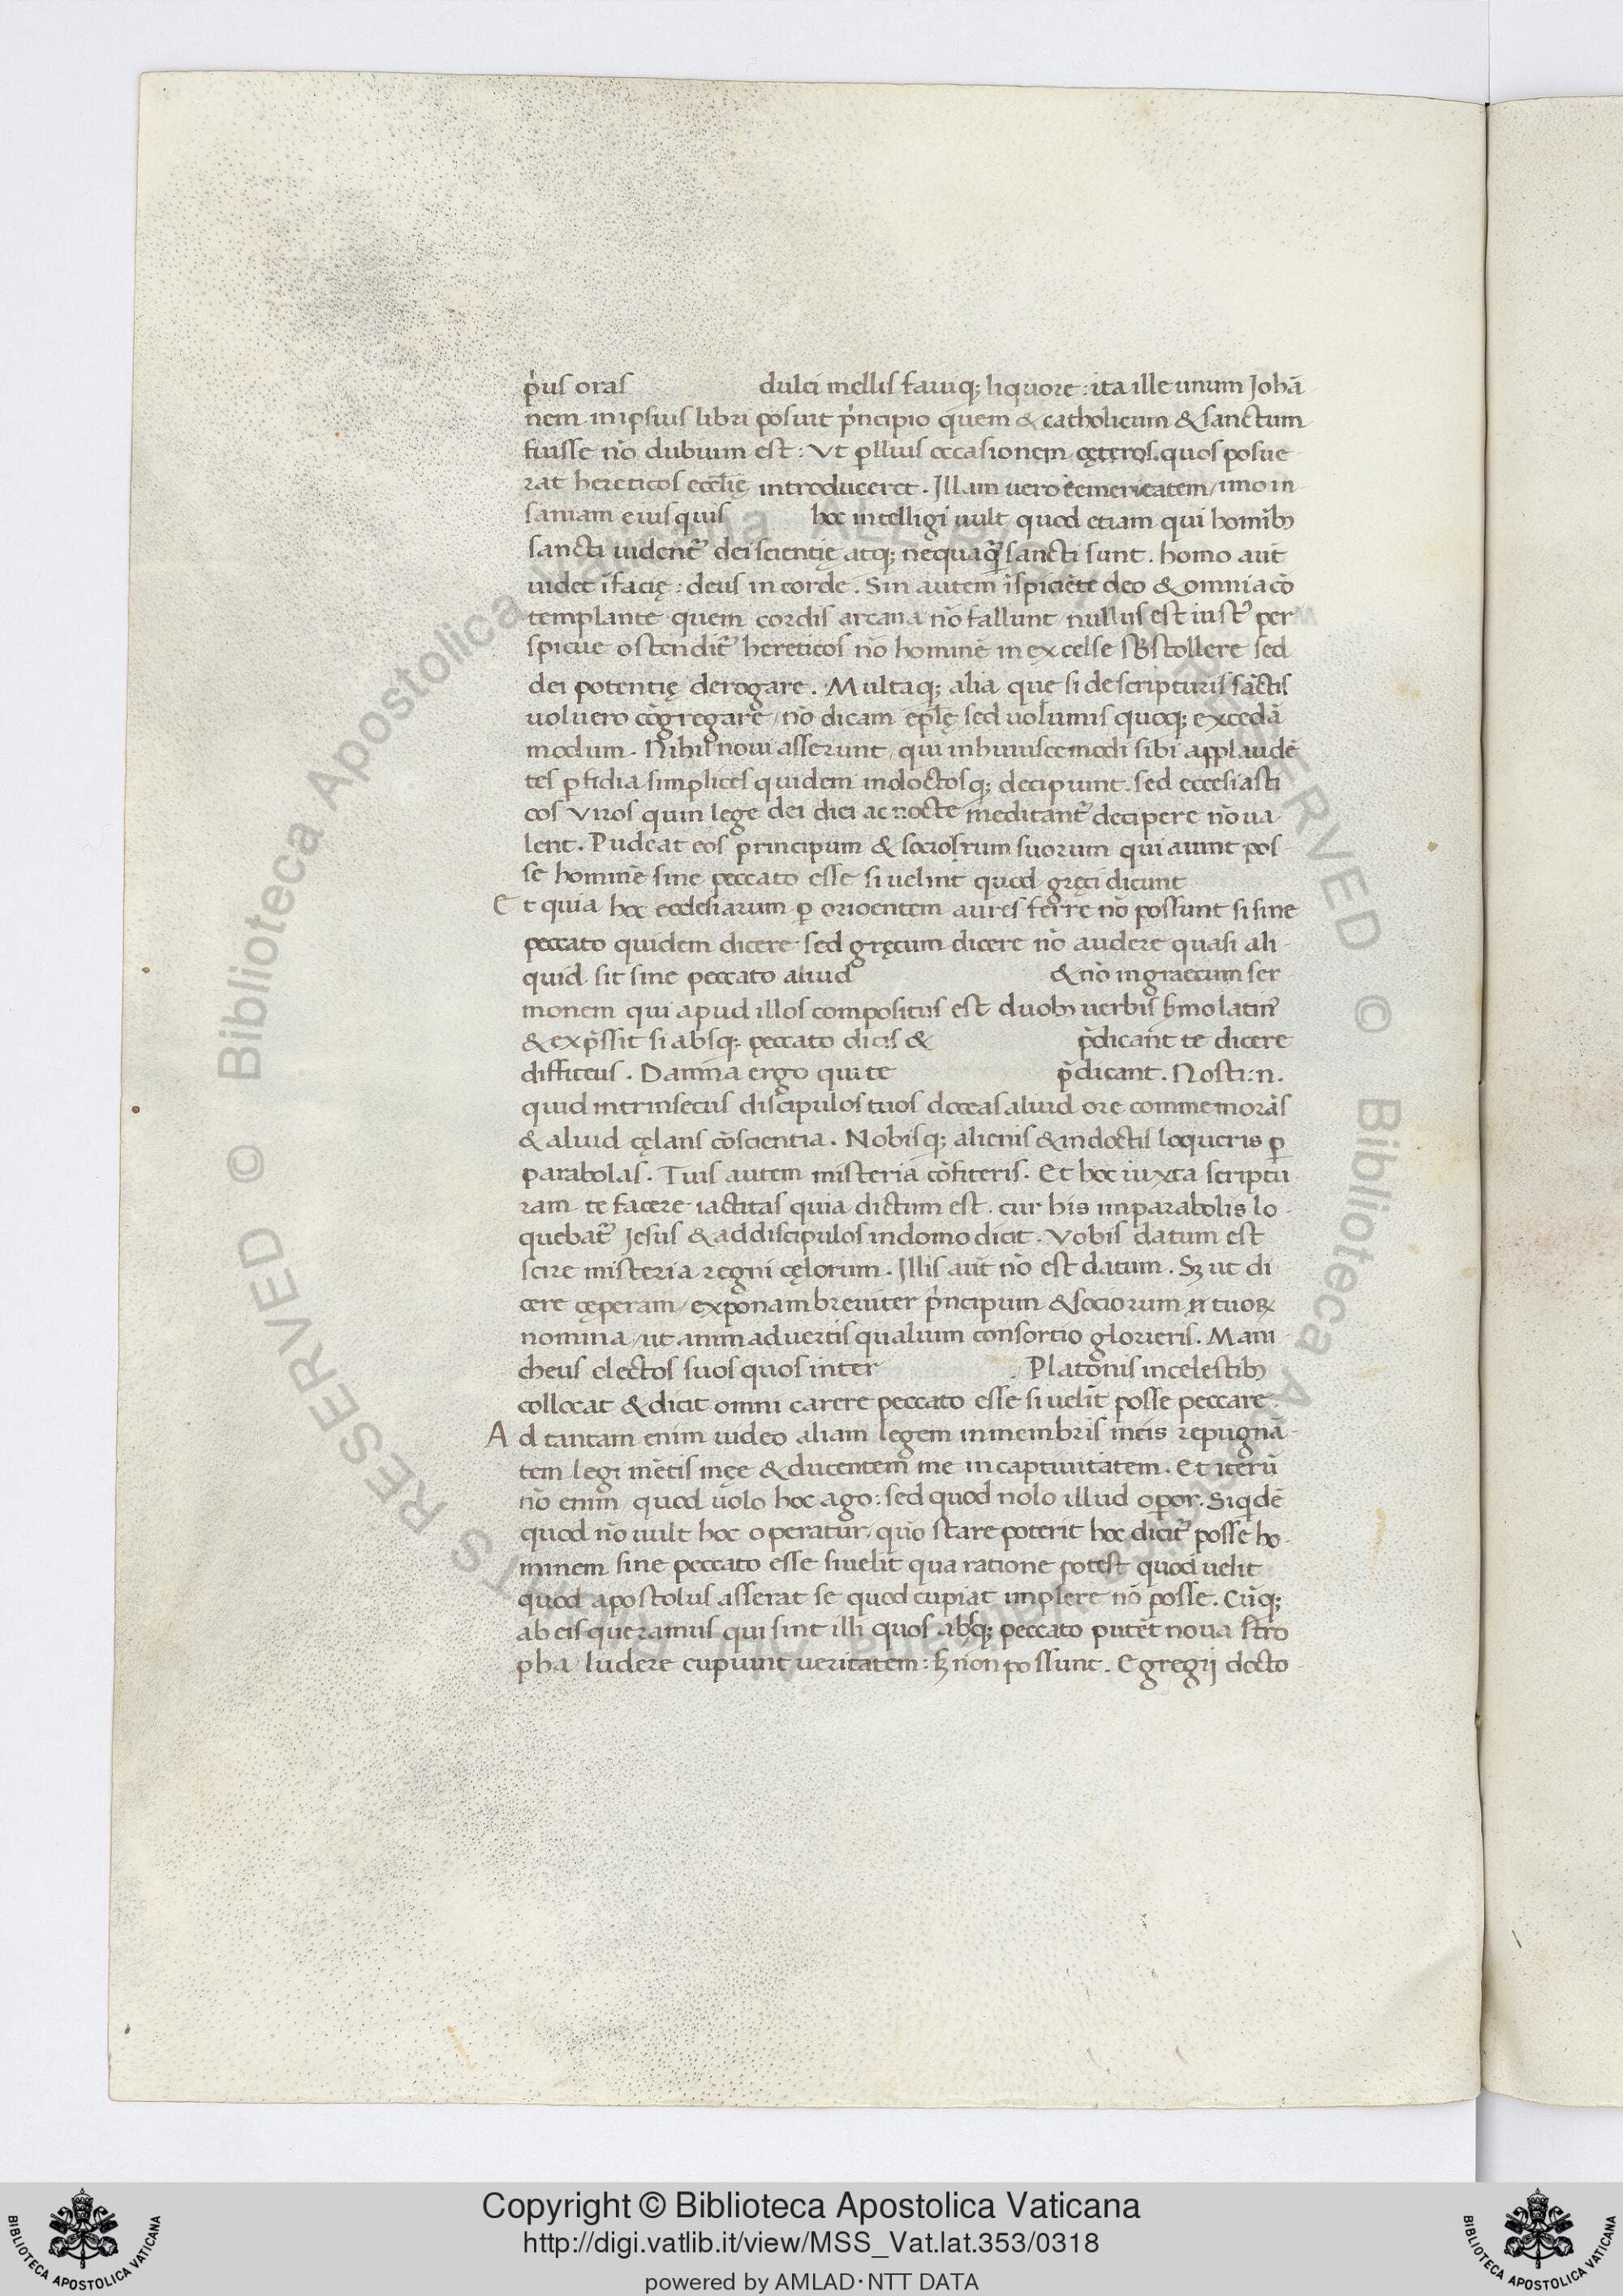 p̃us oras dulci mellis fauiq; liquore : ita ille unum Johã
nem in ipsius libri posuit p̃ncipio quem & catholicum & sanctum
fuisse nõ dubium est : Vt p̱ Illius occasionem cęteros. quos posue
rat hereticos eccl̃ię introduceret. Illam uero temeritatem / imo in
saniam eius quis hoc intelligi uult quod etiam qui homĩb
sancti uident̃ dei scientię atq; nequaq̃ sancti sunt. homo aut̃
uidet ĩ facię : deus in corde. Sin autem ĩspiciẽte deo & omnia cõ
templante quem cordis arcana nõ fallunt / nullus est iust̃ per
spicue ostendit̃ hereticos nõ hominẽ in excelse stollere sed
dei potentię derogare. Multaq; alia quę si de scripturis sãctis
uoluero cõgregare / nõ dicam ep̃lę sed uolumis quoq; excedã
modum. Nihil noui asserunt / qui in huiuscemodi sibi applaudẽ
tes p̱fidia simplices quidem indoctosq; decipiunt. sed eccesiasti
cos Viros qui in lege dei diei ac nocte meditant̃ decipere nõ ua
lent. Pudeat eos principum & sociorum suorum qui aiunt pos
se hominẽ sine peccato esse si uelint quod gręci dicunt
Et quia hoc ecclesiarum p̱ orioentem aures ferre nõ possunt si sine
peccato quidem dicere sed gręcum dicere nõ audere quasi ali
quid sit sine peccato aliud & nõ in graecum ser
monem qui apud illos compositus est duob uerbis smo latin̉
& exp̃ssit si absq; peccato dicis & p̃dicant te dicere
diffiteus. Damna ergo qui te p̃dicant. Nosti .n.
quid intrinsecus discipulos tuos doceas aliud ore commemorãs
& aliud cęlans cõscientia. Nobisq; alienis & indoctis loqueris p̱
parabolas. Tuis autem misteria cõfiteris. Et hoc iuxta scriptu
ram te facere iactitas quia dictum est. cur his in parabolis lo
quebat̃ Jesus & ad discipulos in domo dicit. Vobis datum est
scire misteria regni cęlorum. Illis aut̃ nõ est datum. Sꝫ ut di
cere cęperam / exponam breuiter p̃ncipum & sociorum tuoꝝ
nomina / ut animaduertis qualium consortio glorieris. Mani
cheus electos suos quos inter Platonis in celestib
collocat & dicit omni carere peccato esse si uelit̃ posse peccare.
Ad tantam enim uideo aliam legem in membris meis repugnã
tem legi mẽtis męe & ducentem me in captiuitatem. Et iterũ
nõ enim quod uolo hoc ago : sed quod nolo illud op̱or. Siq̃dẽ
quod nõ uult hoc operatur / quõ stare poterit hoc dicit̃ posse ho
minem sine peccato esse si uelit qua ratione potest quod uelit
quod apostolus asserat se quod cupiat implere nõ posse. Cũq;
ab eis queramus qui sint illi quos absq; peccato putẽt noua stro
pha ludere cupiunt ueritatem : sꝫ non possunt. Egregij docto
Copyright © Biblioteca Apostolica Vaticana
http://digi.vatlib.it/view/MSS_Vat.lat.353/0318
powered by AMLAD·NTT DATA